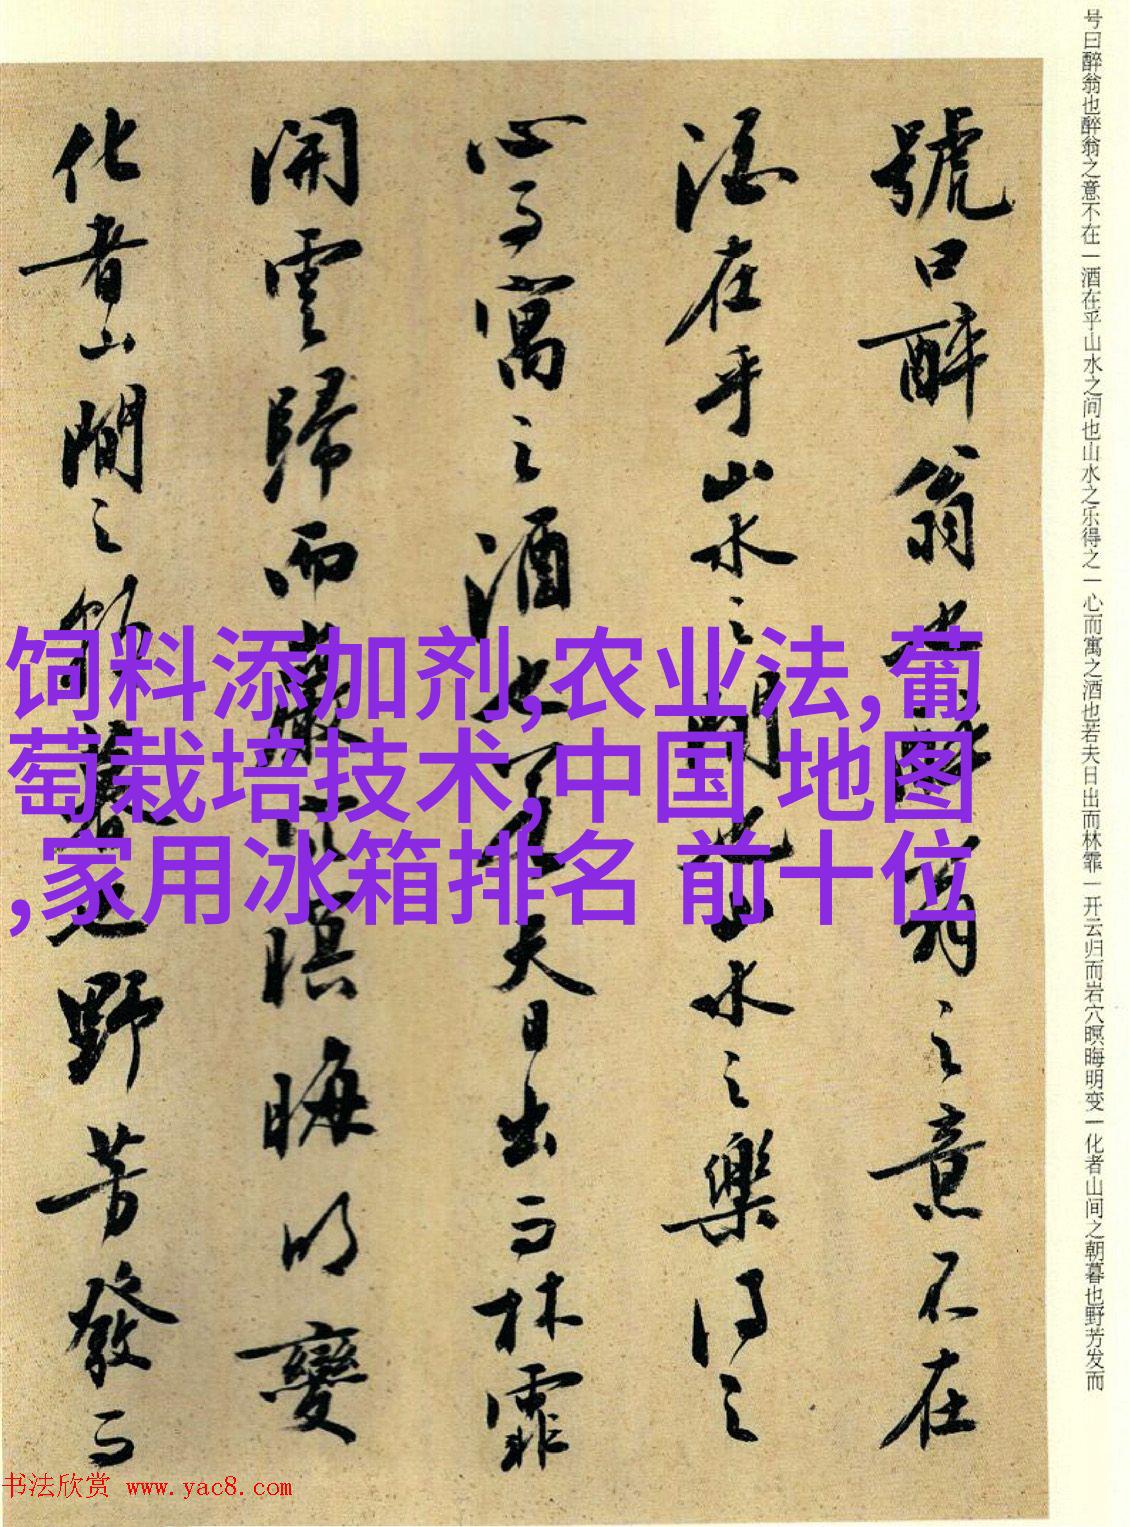 号曰醉翁也醉翁之意不在一酒在乎山水之间也山水之乐得之一心而寓之酒也若夫日出而林霏一开云归而岩穴暝晦明变一化者山间之朝暮也野芳发而
號曰醉翁也醉翁之意不在
酒在乎山水之間也山水之樂得之
心而寓之酒也若夫日出而林霏
開雲歸而巖穴暝晦明變
化者山間之朝暮也野芳發而
饲料添加剂,农业法,葡
萄栽培技术,中国 地图
,家用冰箱排名 前十位
书法欣赏 www.yac8.com